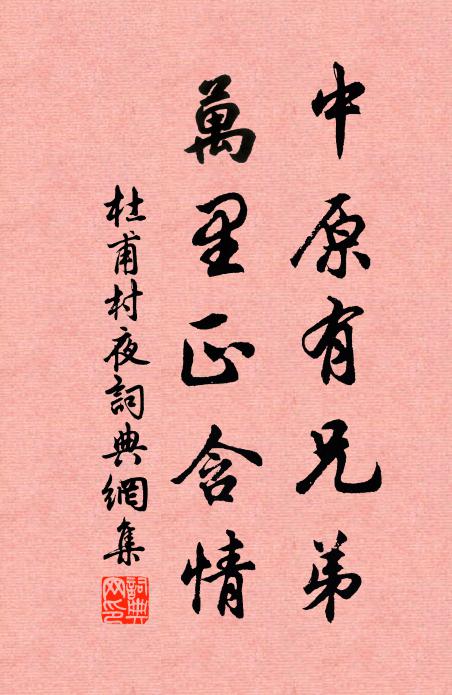 中原有兄弟
萬里正含情
杜甫村夜詞典網集
詞典网印